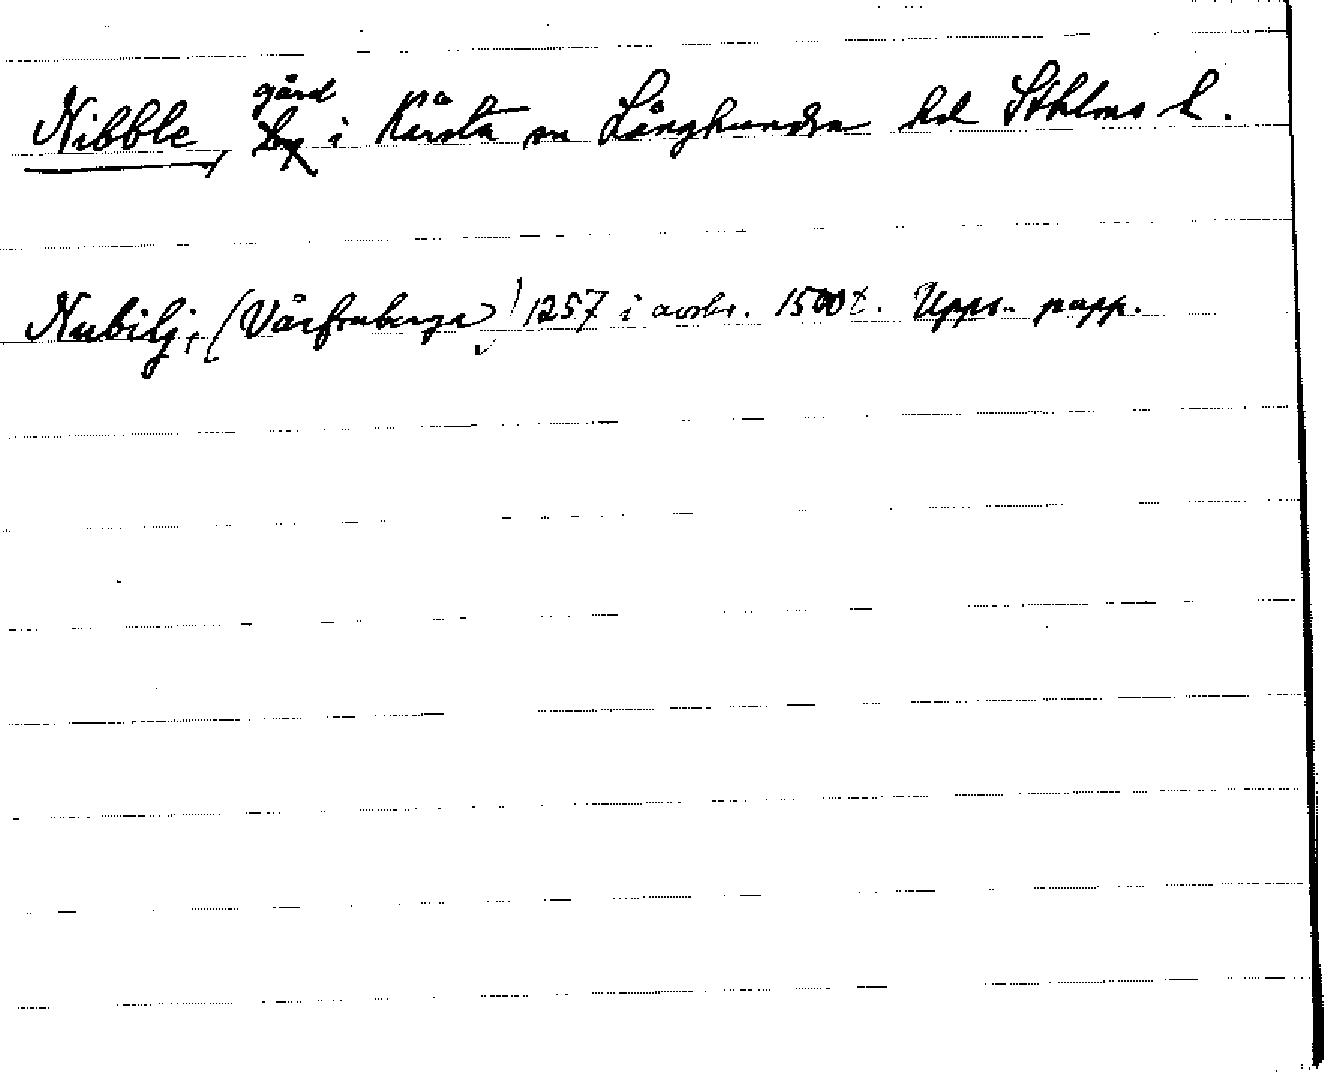 Nibble, gård i Kårsta sn Långhundra hd Sthlms l.
Nubilj, (Vårfruberga) 1257 i avskr. 1500t. Upps. papp.